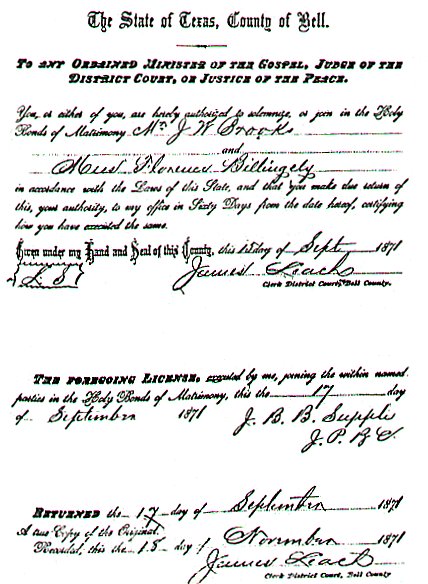 The State of Texas, County of Bell.
To any Ordained Minister of the Gospel, Judge of the
District Court, or Justice of the Peace.
You, or either of you, are hereby authorized to solemnize, or join in the Holy
Bonds of Matrimony Mr J W Brooks
and
Miss Florence Billingsly
in accordance with the Laws of this State, and that you make due return of
this, your authority, to my office in Sixty Days from the date hereof, certifying
how you have executed the same.
Given under my Hand and Seal of this County, this 1st day of Sept 1871
L. S. James Leach
Clerk District Court, Bell County.
The foregoing License, executed by me, joining the within named
parties in the Holy Bonds of Matrimony, this the 17 day
of September 1871 J. B. B. Supple
J. P. B C.
Returned the 17 day of September 1871
A true Copy of the Original.
Recorded, this the 15 day of November 1871
James Leach
Clerk District Court, Bell County